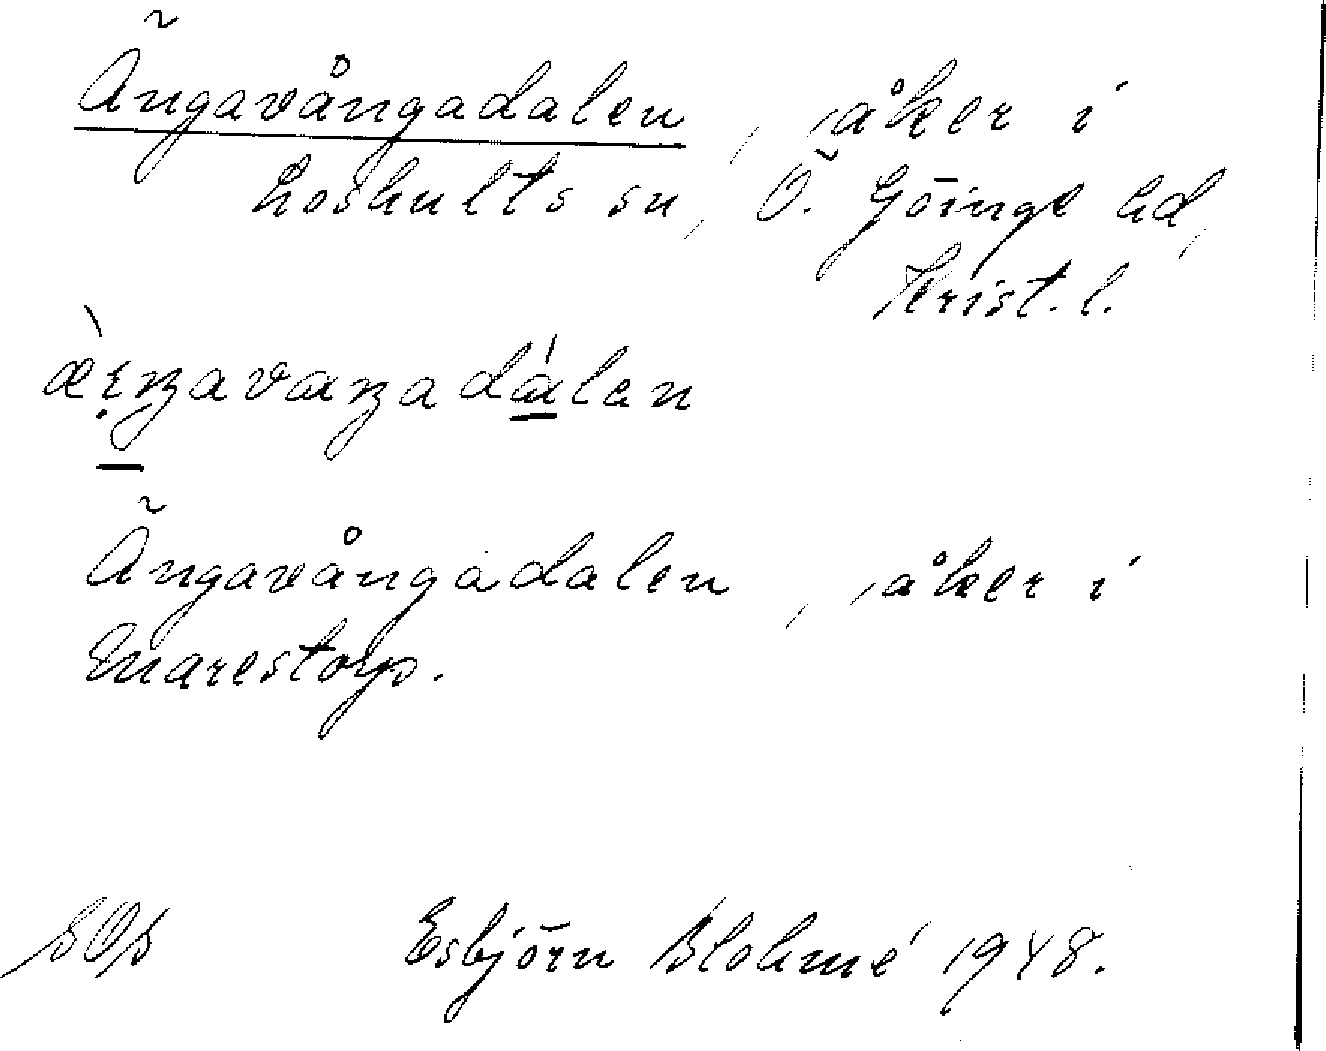 Ängavångadalen, åker i
Loshults sn, Ö. Göinge hd,
Krist. l.
Ängavångadalen, åker i
Enarestorp.
Esbjörn Blohmé 1948.